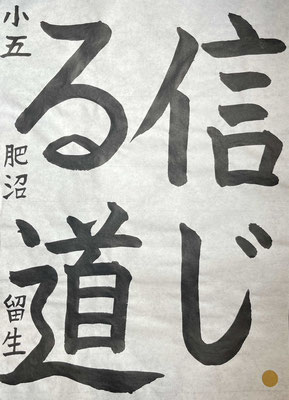 信じ
る道
小五 肥沼 留生